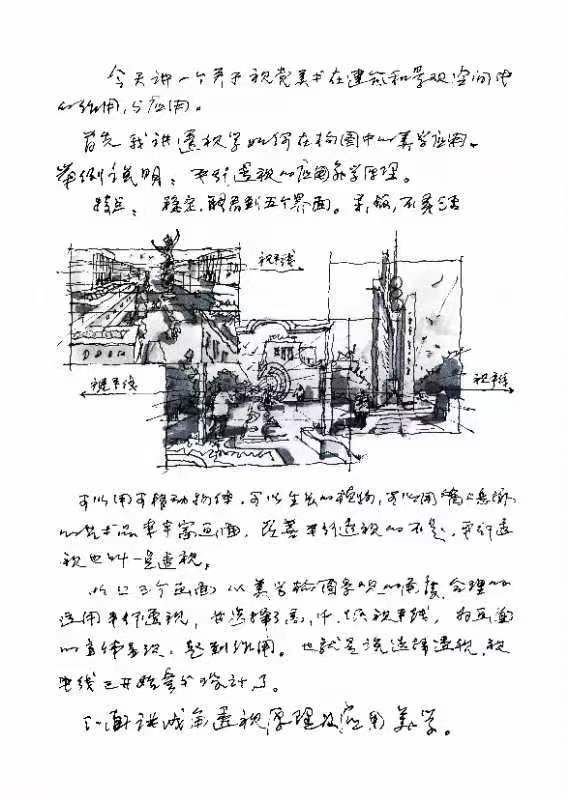 今天讲一个关于视觉美术在建筑和景观空间中
的作用,与应用。
首先我讲透视学如何在构图中的美学应用。
举例说明:平行透视的应用美学原理。
特点:稳定,能看到五个界面。呆板,不灵活
视平线
视平线
视平线
可以用可移动物体,可以生长的植物,可以用
的艺术品来丰富画面,改善平行透视的不足,平行透
视也叫一点透视。
以上三个画面以美学构图景观的角度,合理的
运用平行透视,也选择了高,中,低视平线,为画面
的主体表现,起到作用。也就是说选择透视,视
平线已开始参与设计了。
下面讲成角透视原理及应用美学。